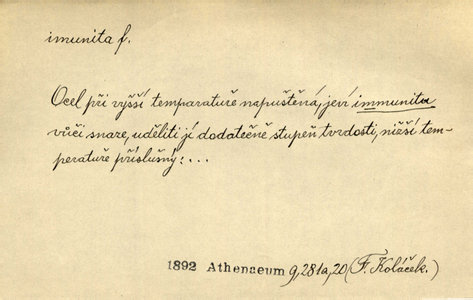 imunita f.
Ocel při vyšší temparatuře napuštěná, jeví immunitu
vůči snaze, uděliti jí dodatečně stupeň tvrdosti, nižší tem-
peratuře příslušný: ...
1892 Athenaeum 9, 281a, 20 (F. Koláček.)